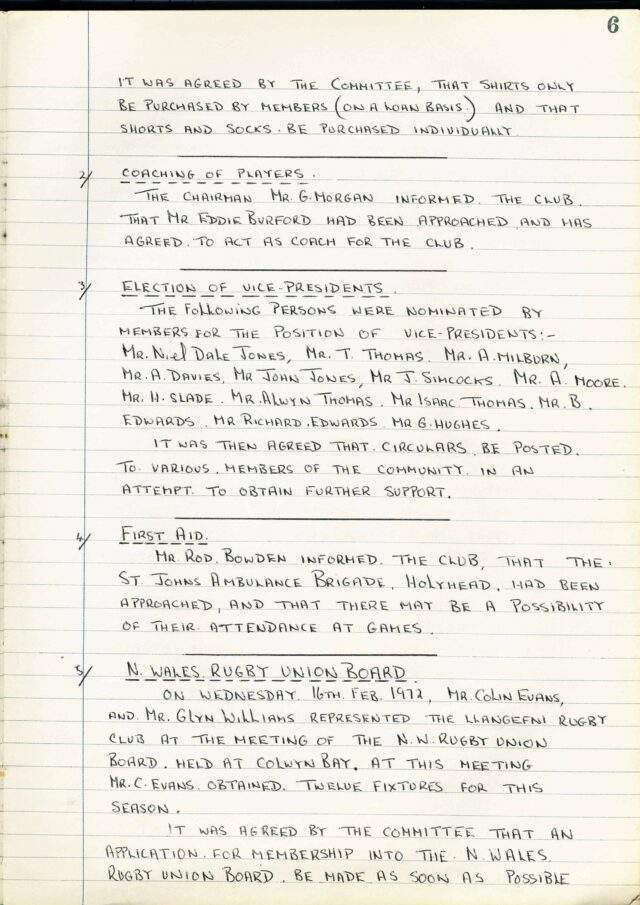 6
IT WAS AGREED BY THE COMMITTEE, THAT SHIRTS ONLY
BE PURCHASED BY MEMBERS (ON A LOAN BASIS) AND THAT
SHORTS AND SOCKS. BE PURCHASED INDIVIDUALLY
2/ COACHING OF PLAYERS.
THE CHAIRMAN MR. G. MORGAN INFORMED. THE CLUB.
THAT MR EDDIE BURFORD HAD BEEN APPROACHED AND HAS
AGREED. TO ACT AS COACH FOR THE CLUB.
3/ ELECTION OF VICE-PRESIDENTS.
THE FOLLOWING PERSONS WERE NOMINATED BY
MEMBERS FOR THE POSITION OF VICE-PRESIDENTS:-
MR. NIEL DALE JONES, MR. T. THOMAS. MR. A. MILBURN,
MR. A. DAVIES, MR JOHN JONES, MR J. SIMCOCKS. MR. A. MOORE.
MR. H. SLADE. MR. ALWYN THOMAS. MR ISAAC THOMAS. MR. B.
EDWARDS. MR RICHARD. EDWARDS MR G. HUGHES.
IT WAS THEN AGREED THAT. CIRCULARS. BE POSTED.
TO. VARIOUS. MEMBERS OF THE COMMUNITY. IN AN
ATTEMPT. TO OBTAIN FURTHER SUPPORT.
4/ FIRST AID.
MR. ROD. BOWDEN INFORMED. THE CLUB, THAT THE.
ST. JOHNS AMBULANCE BRIGADE, HOLYHEAD, HAD BEEN
APPROACHED, AND THAT THERE MAY BE A POSSIBILITY
OF THEIR. ATTENDANCE AT GAMES.
5/ N. WALES. RUGBY UNION BOARD
ON WEDNESDAY. 16TH. FEB. 1972, MR. COLIN EVANS,
AND. MR. GLYN WILLIAMS REPRESENTED THE LLANGEFNI RUGBY
CLUB AT THE MEETING OF THE N.W. RUGBY UNION
BOARD. HELD AT COLWYN BAY. AT THIS MEETING
MR. C. EVANS. OBTAINED. TWELVE FIXTURES FOR THIS
SEASON.
IT WAS AGREED BY THE COMMITTEE THAT AN
APPLICATION. FOR MEMBERSHIP INTO THE. N. WALES.
RUGBY UNION BOARD. BE MADE AS SOON AS POSSIBLE